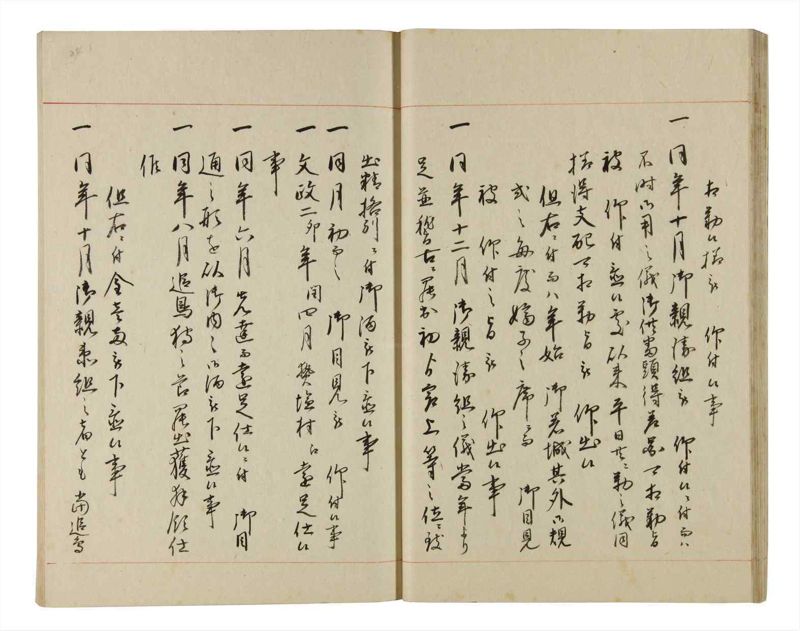 相勤候様被 仰付候事
一 同年十月御親衛組被 仰付候ニ付而ハ
不時御用之儀御供番頭得差図可相勤旨
被 仰付置候処以来平日共ニ勤之儀同
様得支配可相勤旨被 仰出候
但右ニ付而八年始 御着城其外御規
式之毎度嫡子之席ニ而 御目見
被 仰付之旨被 仰出候事
一 同年十二月御親衛組之儀当年より
足並稽古ニ罷出初 上等之
出精格別ニ付御酒被下置候事
一 同月初而之 御目見被 仰付候事
一 文政二卯年閏四月樊塩村江遠足仕候
事
一 同年六月先達而遠足仕候ニ付 御目
通之形を以御内々御酒被下置候事
一 同年八月追鳥狩之節罷出獲拝領仕
候
但右ニ付金 被下置候事
一 同年十月御親衛組之者とも 追鳥